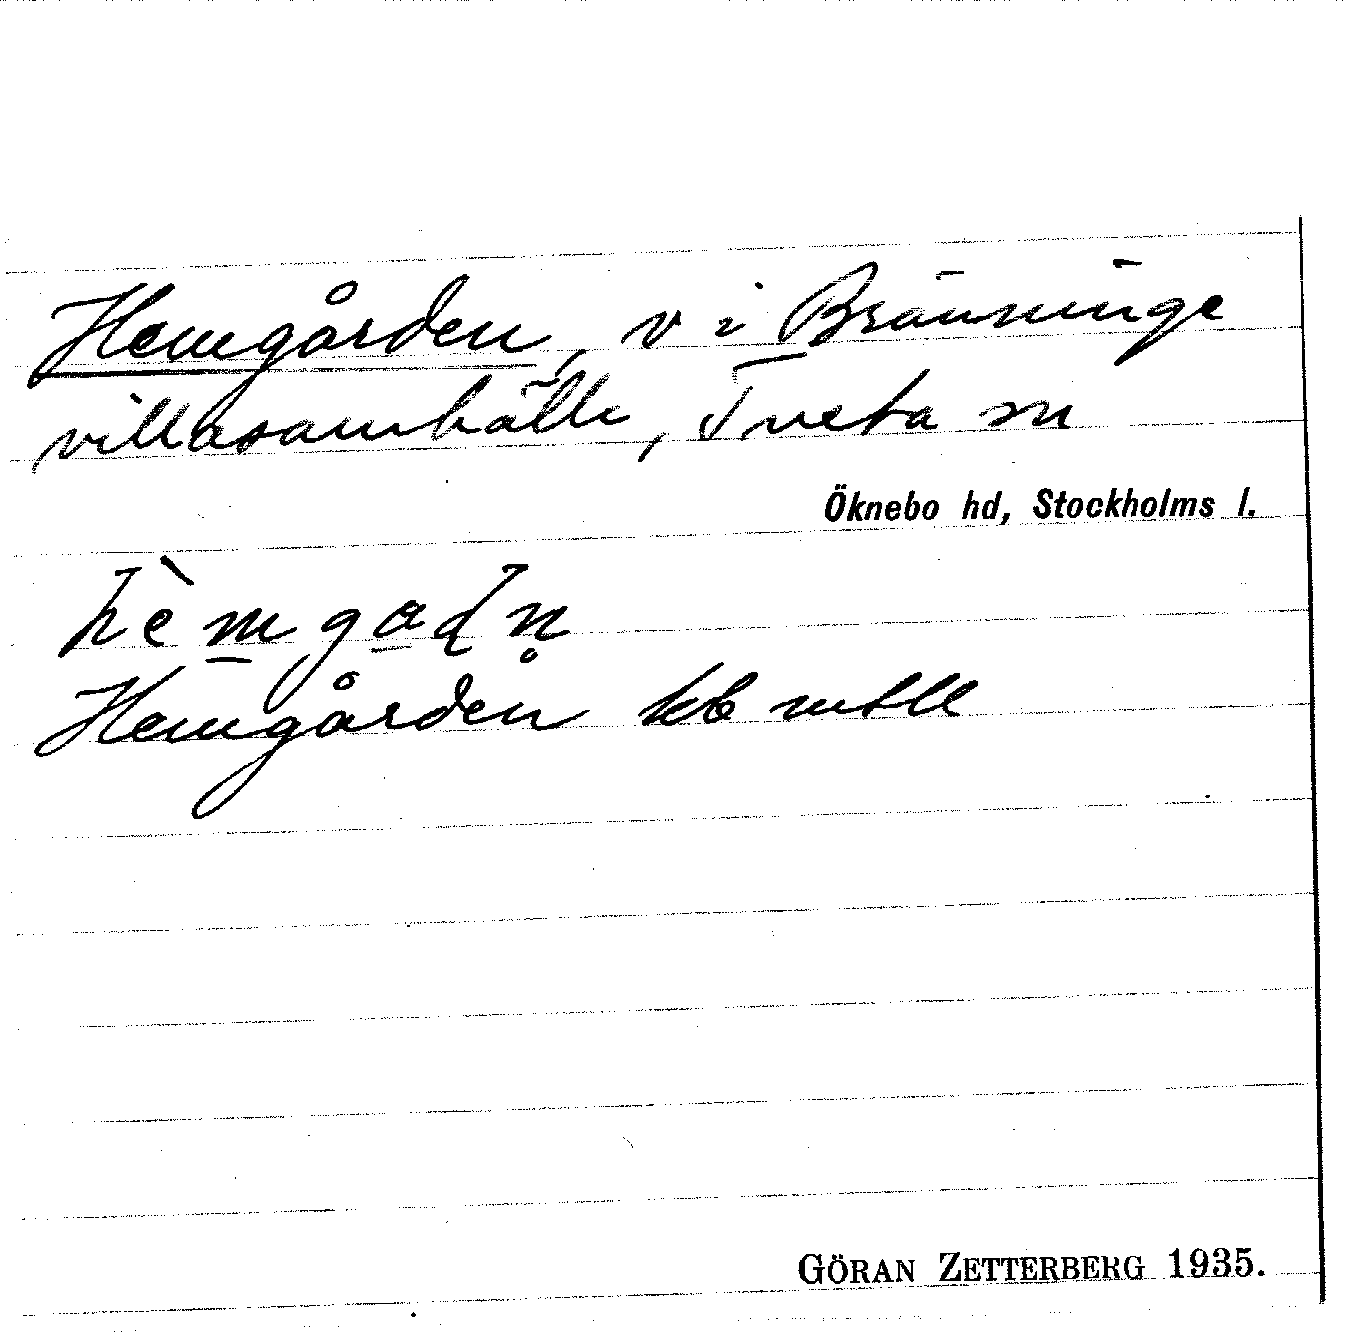 Hemgården, v i Bränninge
villasamhälle, Tveta sn
Öknebo hd, Stockholms l.
hèmgaḍn̥
Hemgården kb
GÖRAN ZETTERBERG 1935.